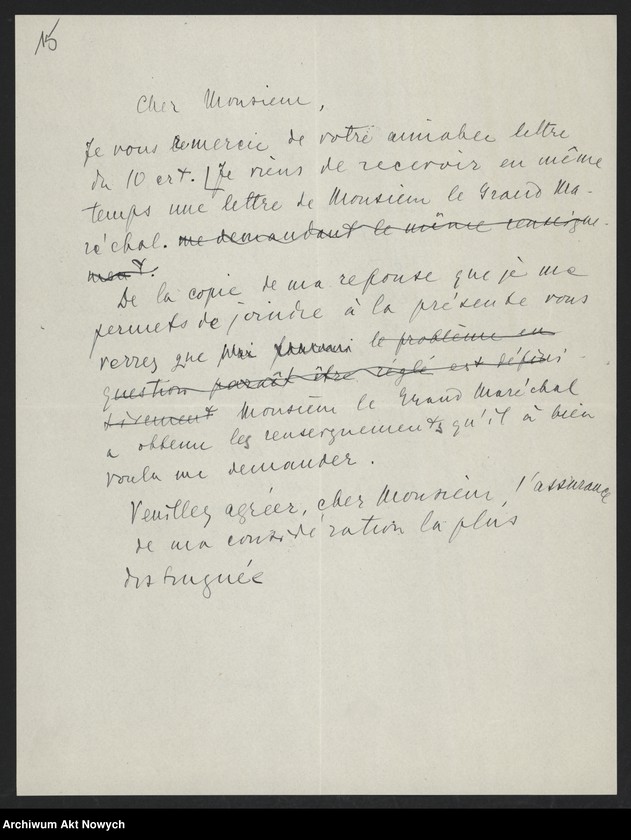 15
Cher Monsieur,
Je vous remercie de votre aimable lettre
du 10 crt. Je viens de recevoir en même
temps une lettre de Monsieur le Grand Ma-
réchal. me demandant le même renseigne-
ment.
De la copie de ma réponse que je me
permets de joindre à la présente vous
verrez que le problème en
question paraît être réglé est défini-
tivement Monsieur le Grand Maréchal
a obtenu les renseignements qu'il a bien
voulu me demander.
Veuillez agréer, cher Monsieur, l'assurance
de ma considération la plus
distinguée
Archiwum Akt Nowych